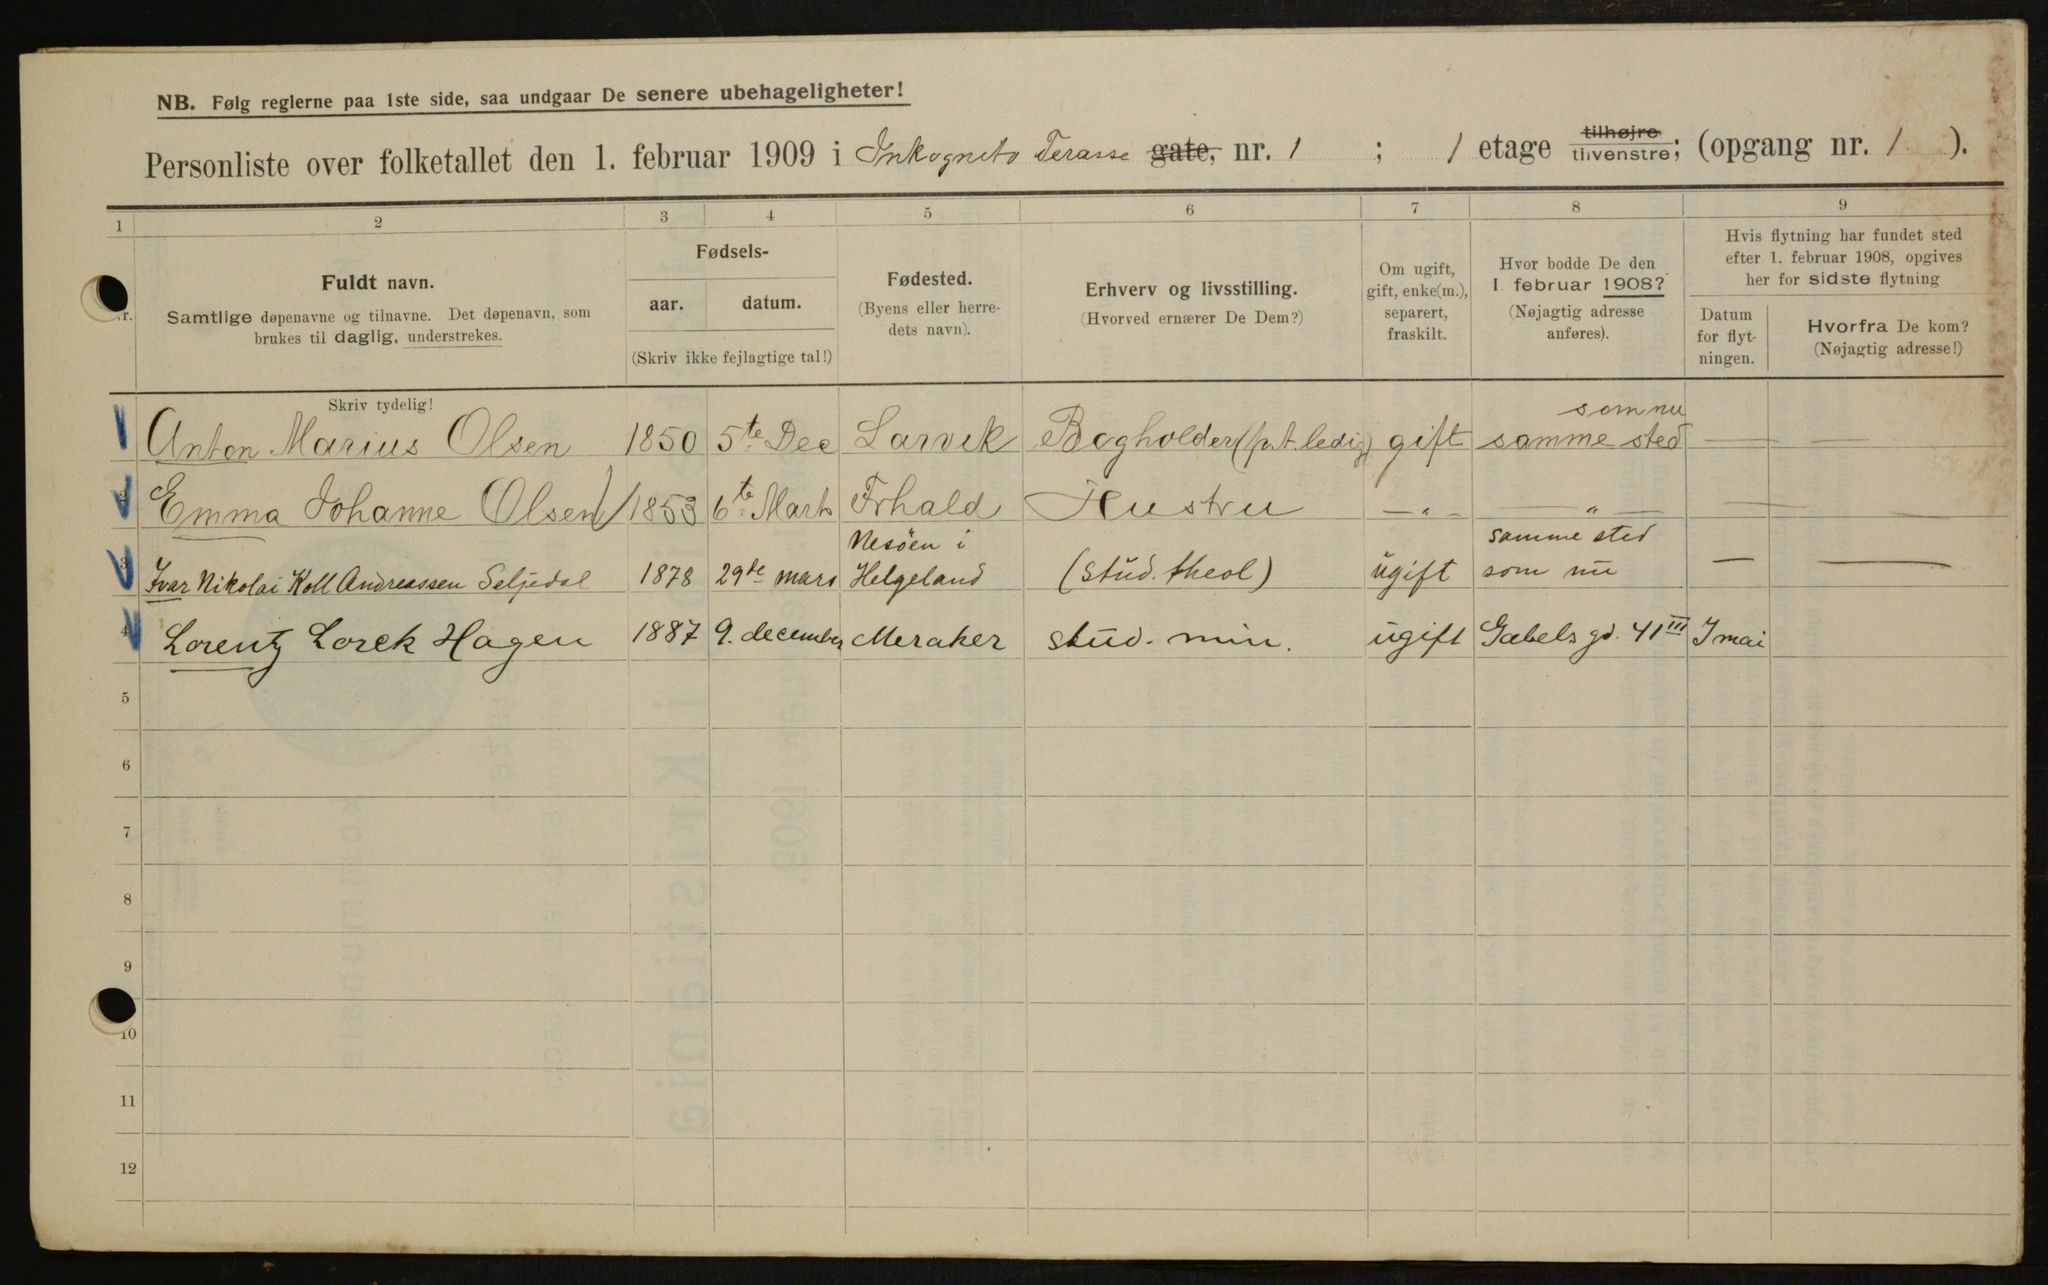 NB. Følg reglerne paa 1ste side, saa undgaar De senere ubehageligheter!
Personliste over folketallet den 1. februar 1909 i Inkognito Terasse gate, nr. 1 ; 1 etage tilhøjre tilvenstre; (opgang nr. 1 ).
1 2 3 4 5 6 7 8 9
Fuldt navn.
Samtlige døpenavne og tilnavne. Det døpenavn, som
brukes til daglig, understrekes.
Skriv tydelig!
Fødsels-
aar. datum.
(Skriv ikke fejlagtige tal!)
Fødested.
(Byens eller herre-
dets navn).
Erhverv og livsstilling.
(Hvorved ernærer De Dem?)
Om ugift,
gift, enke(m.),
separert,
fraskilt.
Hvor bodde De den
1. februar 1908?
(Nøjagtig adresse
anføres).
Hvis flytning har fundet sted
efter 1. februar 1908, opgives
her for sidste flytning
Datum
for flyt-
ningen.
Hvorfra De kom?
(Nøjagtig adresse!)
som nu
Anton Marius Olsen 1850 5te Dec Larvik Bogholder (p.t. ledig) gift samme sted — —
Emma Johanne Olsen 1853 6te Marts Frhald Hustru —„— —„— — —
Nesöen i samme sted
3 Ivar Nikolai Koll Andreassen Seljedal 1878 29de mars Helgeland (stud. theol) ugift som nu — —
4 Lorentz Lorck Hagen 1887 9. december Meraker stud. min. ugift Gabels gd. 41 III I mai
5
6
7
8
9
10
11
12